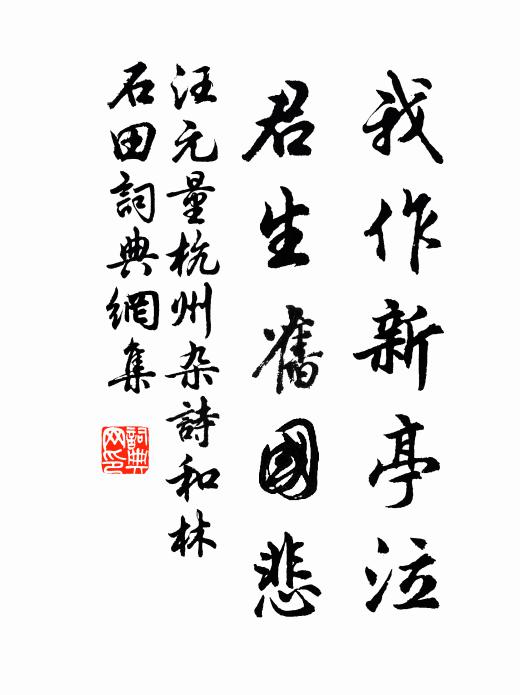 我作新亭泣
君生舊國悲
汪元量杭州杂詩和林
石田詞典網集
詞典网印